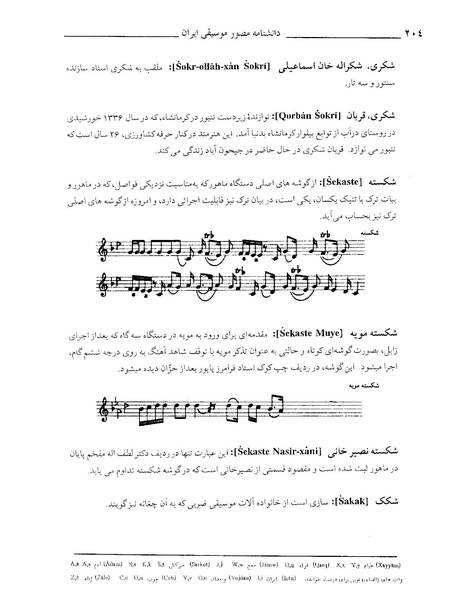 ۲۰۴ دانشنامه مصور موسیقی ایران
شکری، شکراله خان اسماعیلی [Šokr-ollâh-xân Šokrí]: ملقب به شکری استاد سازنده
سنتور و سه تار.
شکری، قربان [Qorbân Šokrí]: نوازندهٔ زبردست تنبور در کرمانشاه، که در سال ۱۳۳۶ خورشیدی
در روستای درآب از توابع بیلوار کرمانشاه بدنیا آمد. این هنرمند در کنار حرفه کشاورزی، ۲۶ سال است که
تنبور می نوازد. قربان شکری در حال حاضر در جیحون آباد زندگی می کند.
شکسته [Šekaste]: از گوشه های اصلی دستگاه ماهور که به مناسبت نزدیکی فواصل، که در ماهور و
بیات ترک با تنیک یکسان، یکی است، در بیان ترک نیز قابلیت اجرائی دارد، و امروزه از گوشه های اصلی
ترک نیز بحساب می آید.
شکسته
شکسته مویه [Šekaste Muye]: مقدمه ای برای ورود به مویه در دستگاه سه گاه که بعد از اجرای
زابل، بصورت گوشه ای کوتاه و حالتی به عنوان تذکر مویه با توقف شاهد آهنگ به روی درجه ششم گام،
اجرا میشود. این گوشه، در ردیف چپ کوک استاد فرامرز پایور بعد از حزّان دیده میشود.
شکسته مویه
شکسته نصیر خانی [Šekaste Nasir-xâni]: این عبارت تنها در ردیف دکتر لطف اله مفخم پایان
در ماهور ثبت شده است و مقصود قسمتی از نصیرخانی است که در گوشه شکسته تداوم می یابد.
شکک [Šakak]: سازی است از خانواده آلات موسیقی ضربی که به آن چغانه نیز گویند.